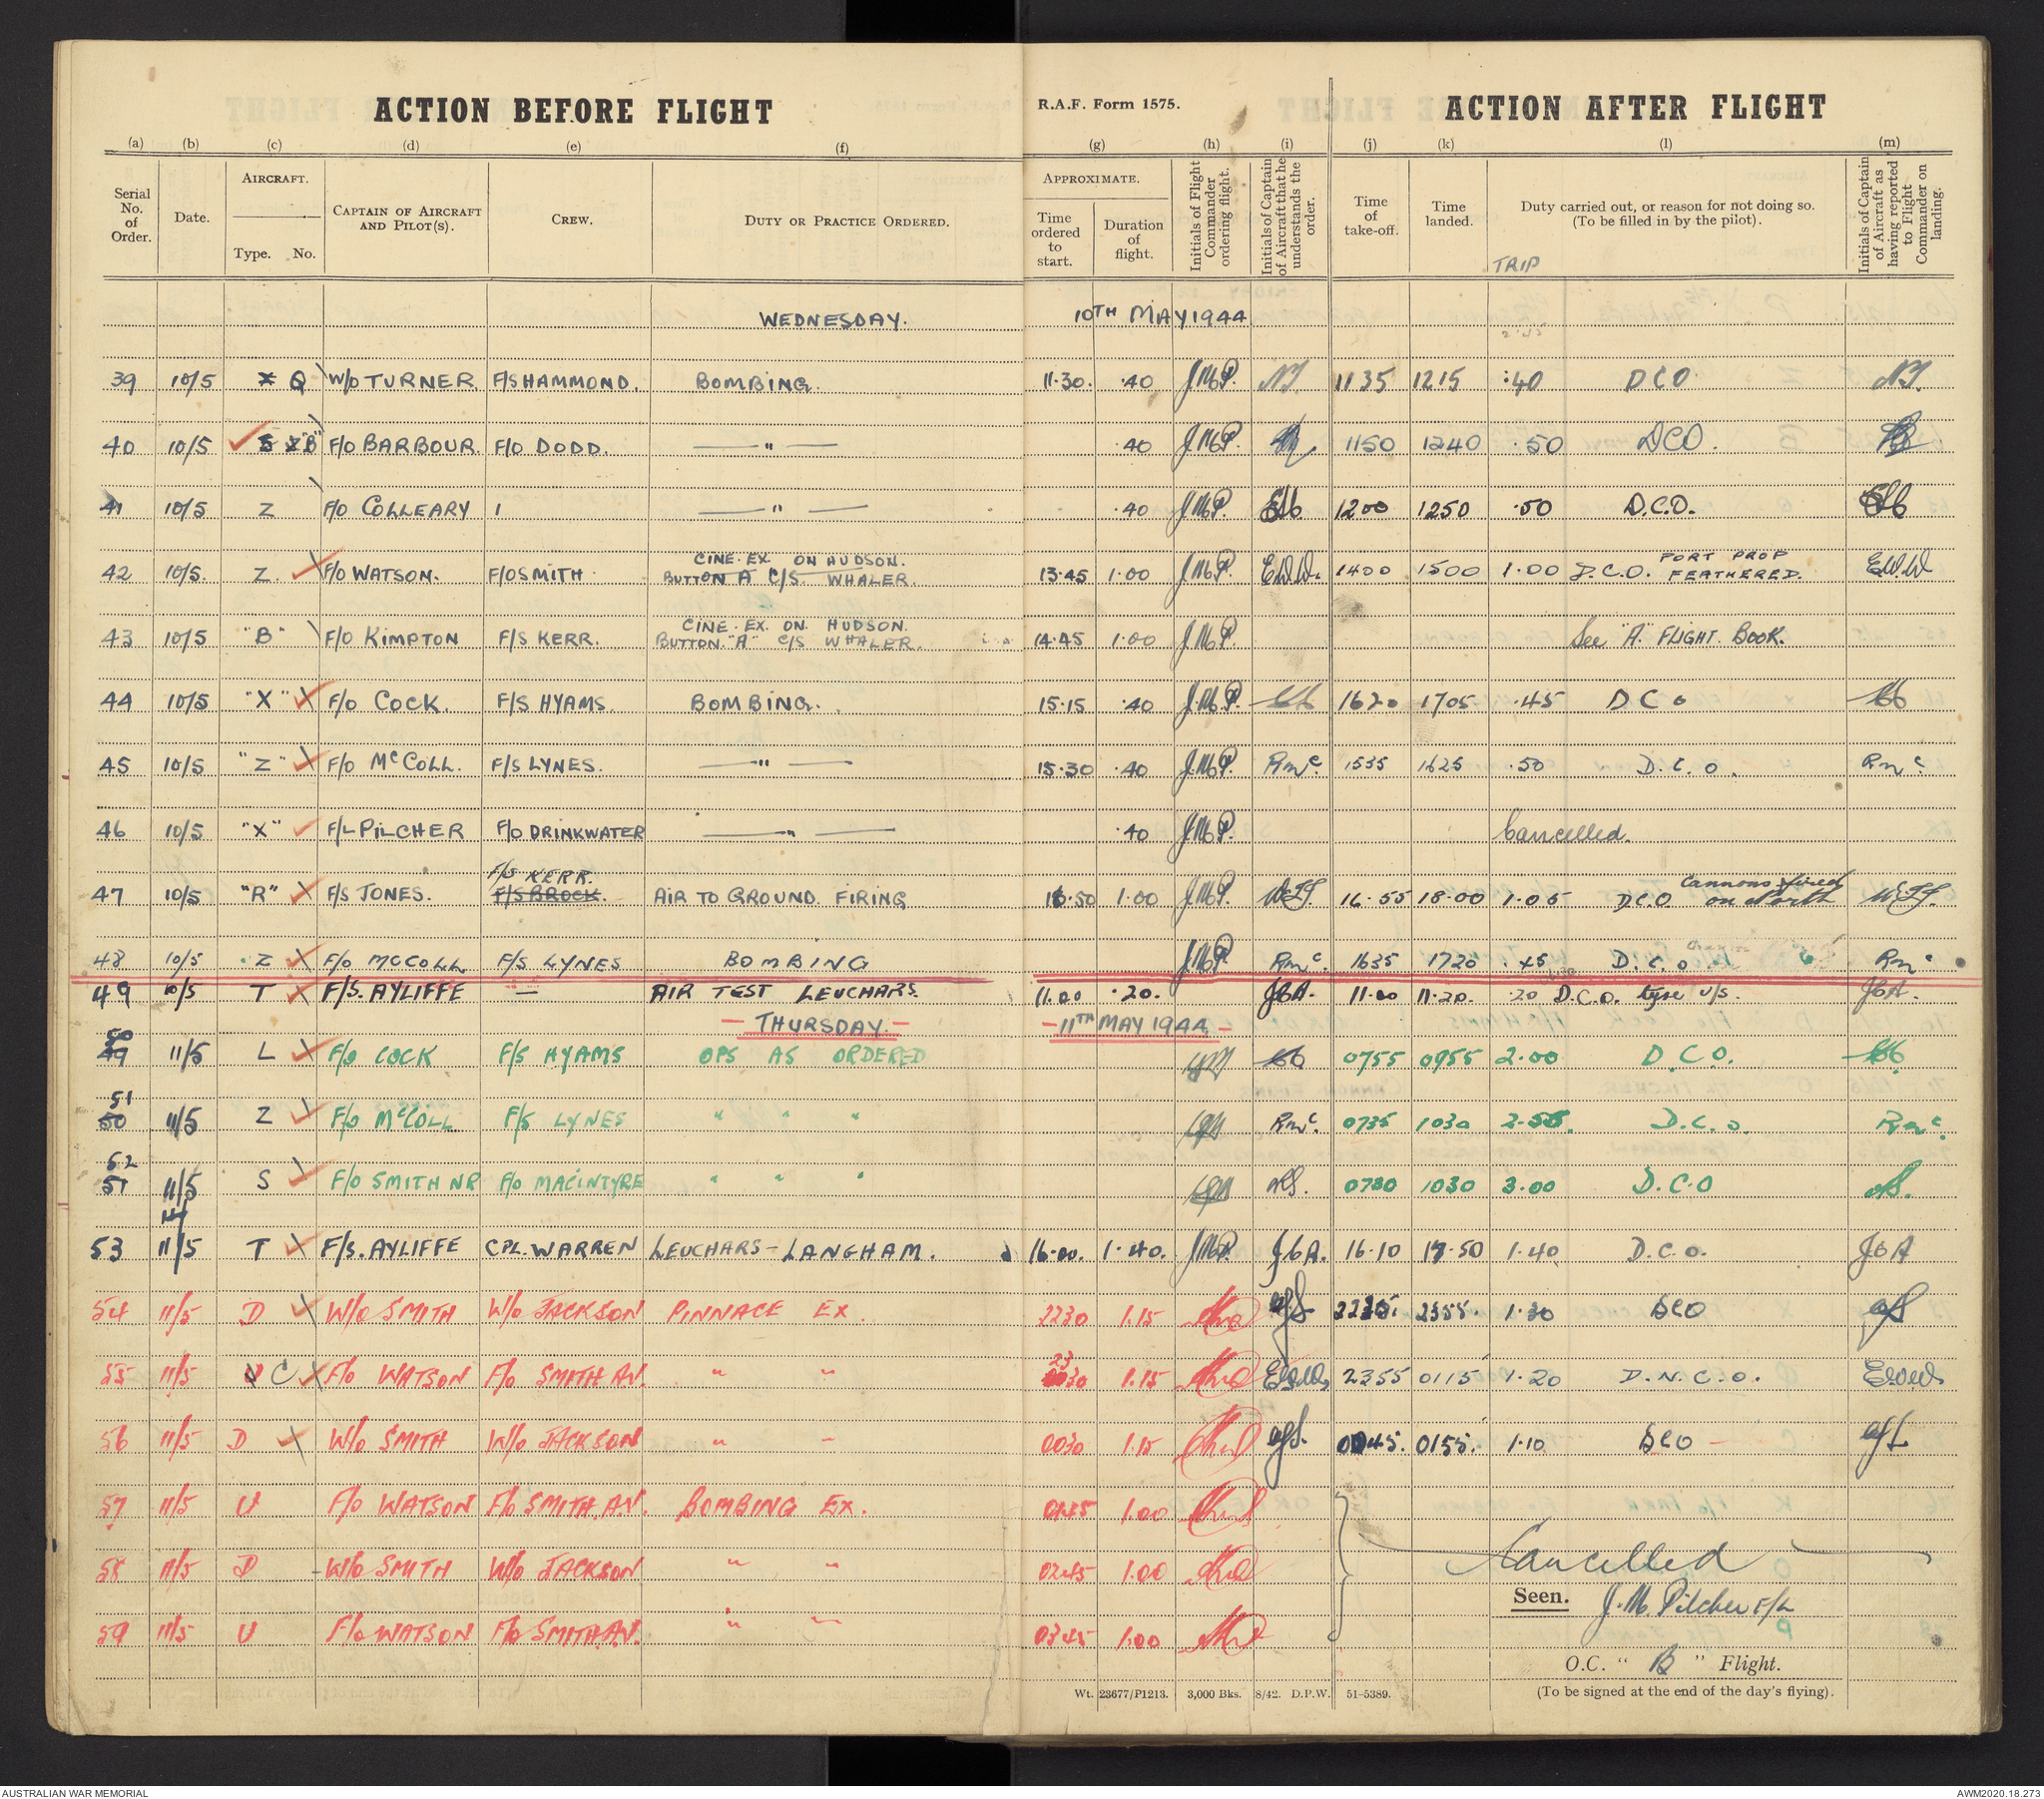 ACTION BEFORE FLIGHT
R.A.F. Form 1575.
ACTION AFTER FLIGHT
(a) (b) (c) (d) (e) (f) (g) (h) (i) (j) (k) (l) (m)
Serial No. of Order.
Date.
AIRCRAFT.
Type. No.
CAPTAIN OF AIRCRAFT AND PILOT(S).
CREW.
DUTY OR PRACTICE ORDERED.
APPROXIMATE.
Time ordered to start.
Duration of flight.
Initials of Flight Commander ordering flight.
Initials of Captain of Aircraft that he understands the order.
Time of take-off.
Time landed.
Duty carried out, or reason for not doing so.
(To be filled in by the pilot).
TRIP
Initials of Captain of Aircraft as having reported to Flight Commander on landing.
WEDNESDAY. 10TH MAY 1944
39 10/5 Q W/O TURNER F/S HAMMOND. BOMBING. 11.30. .40 J.M.P. NT 1135 1215 :40 DCO NT.
40 10/5 "B" F/O BARBOUR. F/O DODD. — " — .40 J.M.P. 1150 1240 .50 DCO.
41 10/5 Z F/O COLLEARY 1 — " — .40 J.M.P. 1200 1250 .50 D.C.O.
42 10/5. Z. F/O WATSON. F/O SMITH CINE. EX. ON HUDSON. BUTTON A C/S WHALER. 13.45 1.00 J.M.P. E.W.W. 1400 1500 1.00 D.C.O. PORT PROP FEATHERED. E.W.W
43 10/5 "B" F/O KIMPTON F/S KERR. CINE. EX. ON. HUDSON. BUTTON "A" C/S WHALER. 14.45 1.00 J.M.P. See "A" FLIGHT. BOOK.
44 10/5 "X" F/O COCK. F/S HYAMS. BOMBING. 15.15 .40 J.M.P. 1620 1705 .45 D C O
45 10/5 "Z" F/O McCOLL. F/S LYNES. — " — 15.30 .40 J.M.P. RMc. 1535 1625 .50 D.C.O. RMc
46 10/5 "X" F/L PILCHER F/O DRINKWATER — " — .40 J.M.P. Cancelled.
47 10/5 "R" F/S JONES. F/S KERR. F/S BROCK. AIR TO GROUND FIRING 16.50 1.00 J.M.P. 16.55 18.00 1.05 D.C.O. Cannons fired on North
48 10/5 Z F/O McCOLL F/S LYNES BOMBING J.M.P. RMc. 1635 1720 .45 D.C.O RMc
49 10/5 T F/S. AYLIFFE — AIR TEST LEUCHARS. 11.00 .20. JCA. 11.00 11.20. .20 D.C.O. tyre U/S. JCA.
— THURSDAY. — — 11TH MAY 1944 —
50 49 11/5 L F/O COCK F/S HYAMS OPS AS ORDERED 0755 0955 2.00 D.C.O.
51 50 11/5 Z F/O McCOLL F/S LYNES " " " RMc. 0735 1030 2.55. D.C.O. RMc.
52 51 11/5 S F/O SMITH NR F/O MACINTYRE " " " 0730 1030 3.00 D.C.O
53 11/5 T F/S. AYLIFFE CPL. WARREN LEUCHARS – LANGHAM. 16.00. 1.40. J.M.P. JCA. 16.10 17.50 1.40 D.C.O. JCA
54 11/5 D W/O SMITH W/O JACKSON PINNACE EX. 2230 1.15 2355. 1.30 DCO
55 11/5 C F/O WATSON F/O SMITH A.V. " " 2330 1.15 2355 0115 1.20 D.N.C.O.
56 11/5 D W/O SMITH W/O JACKSON " " 0030 1.15 0045. 0155. 1.10 DCO
57 11/5 U F/O WATSON F/O SMITH. A.V. BOMBING EX. 0145 1.00
58 11/5 D W/O SMITH W/O JACKSON " " 0245 1.00 Cancelled
59 11/5 U F/O WATSON F/O SMITH A.V. " " 0345 1.00
Seen. J.M. Pilcher F/L
O.C. " B " Flight.
(To be signed at the end of the day's flying).
Wt. 23677/P1213. 3,000 Bks. 8/42. D.P.W. 51-5389.
AUSTRALIAN WAR MEMORIAL
AWM2020.18.273